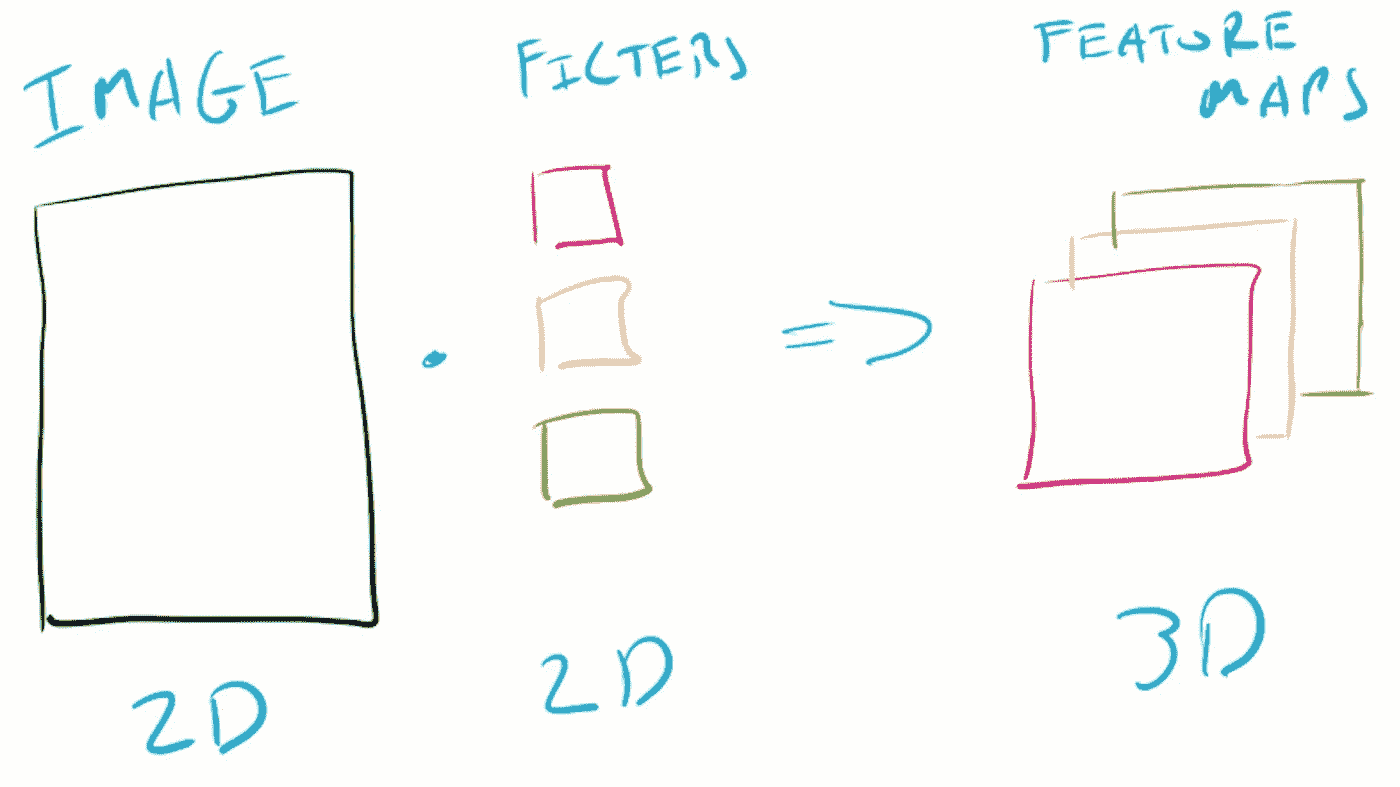 IMAGE
FILTERS
FEATURE
MAPS
.
=>
2D
2D
3D